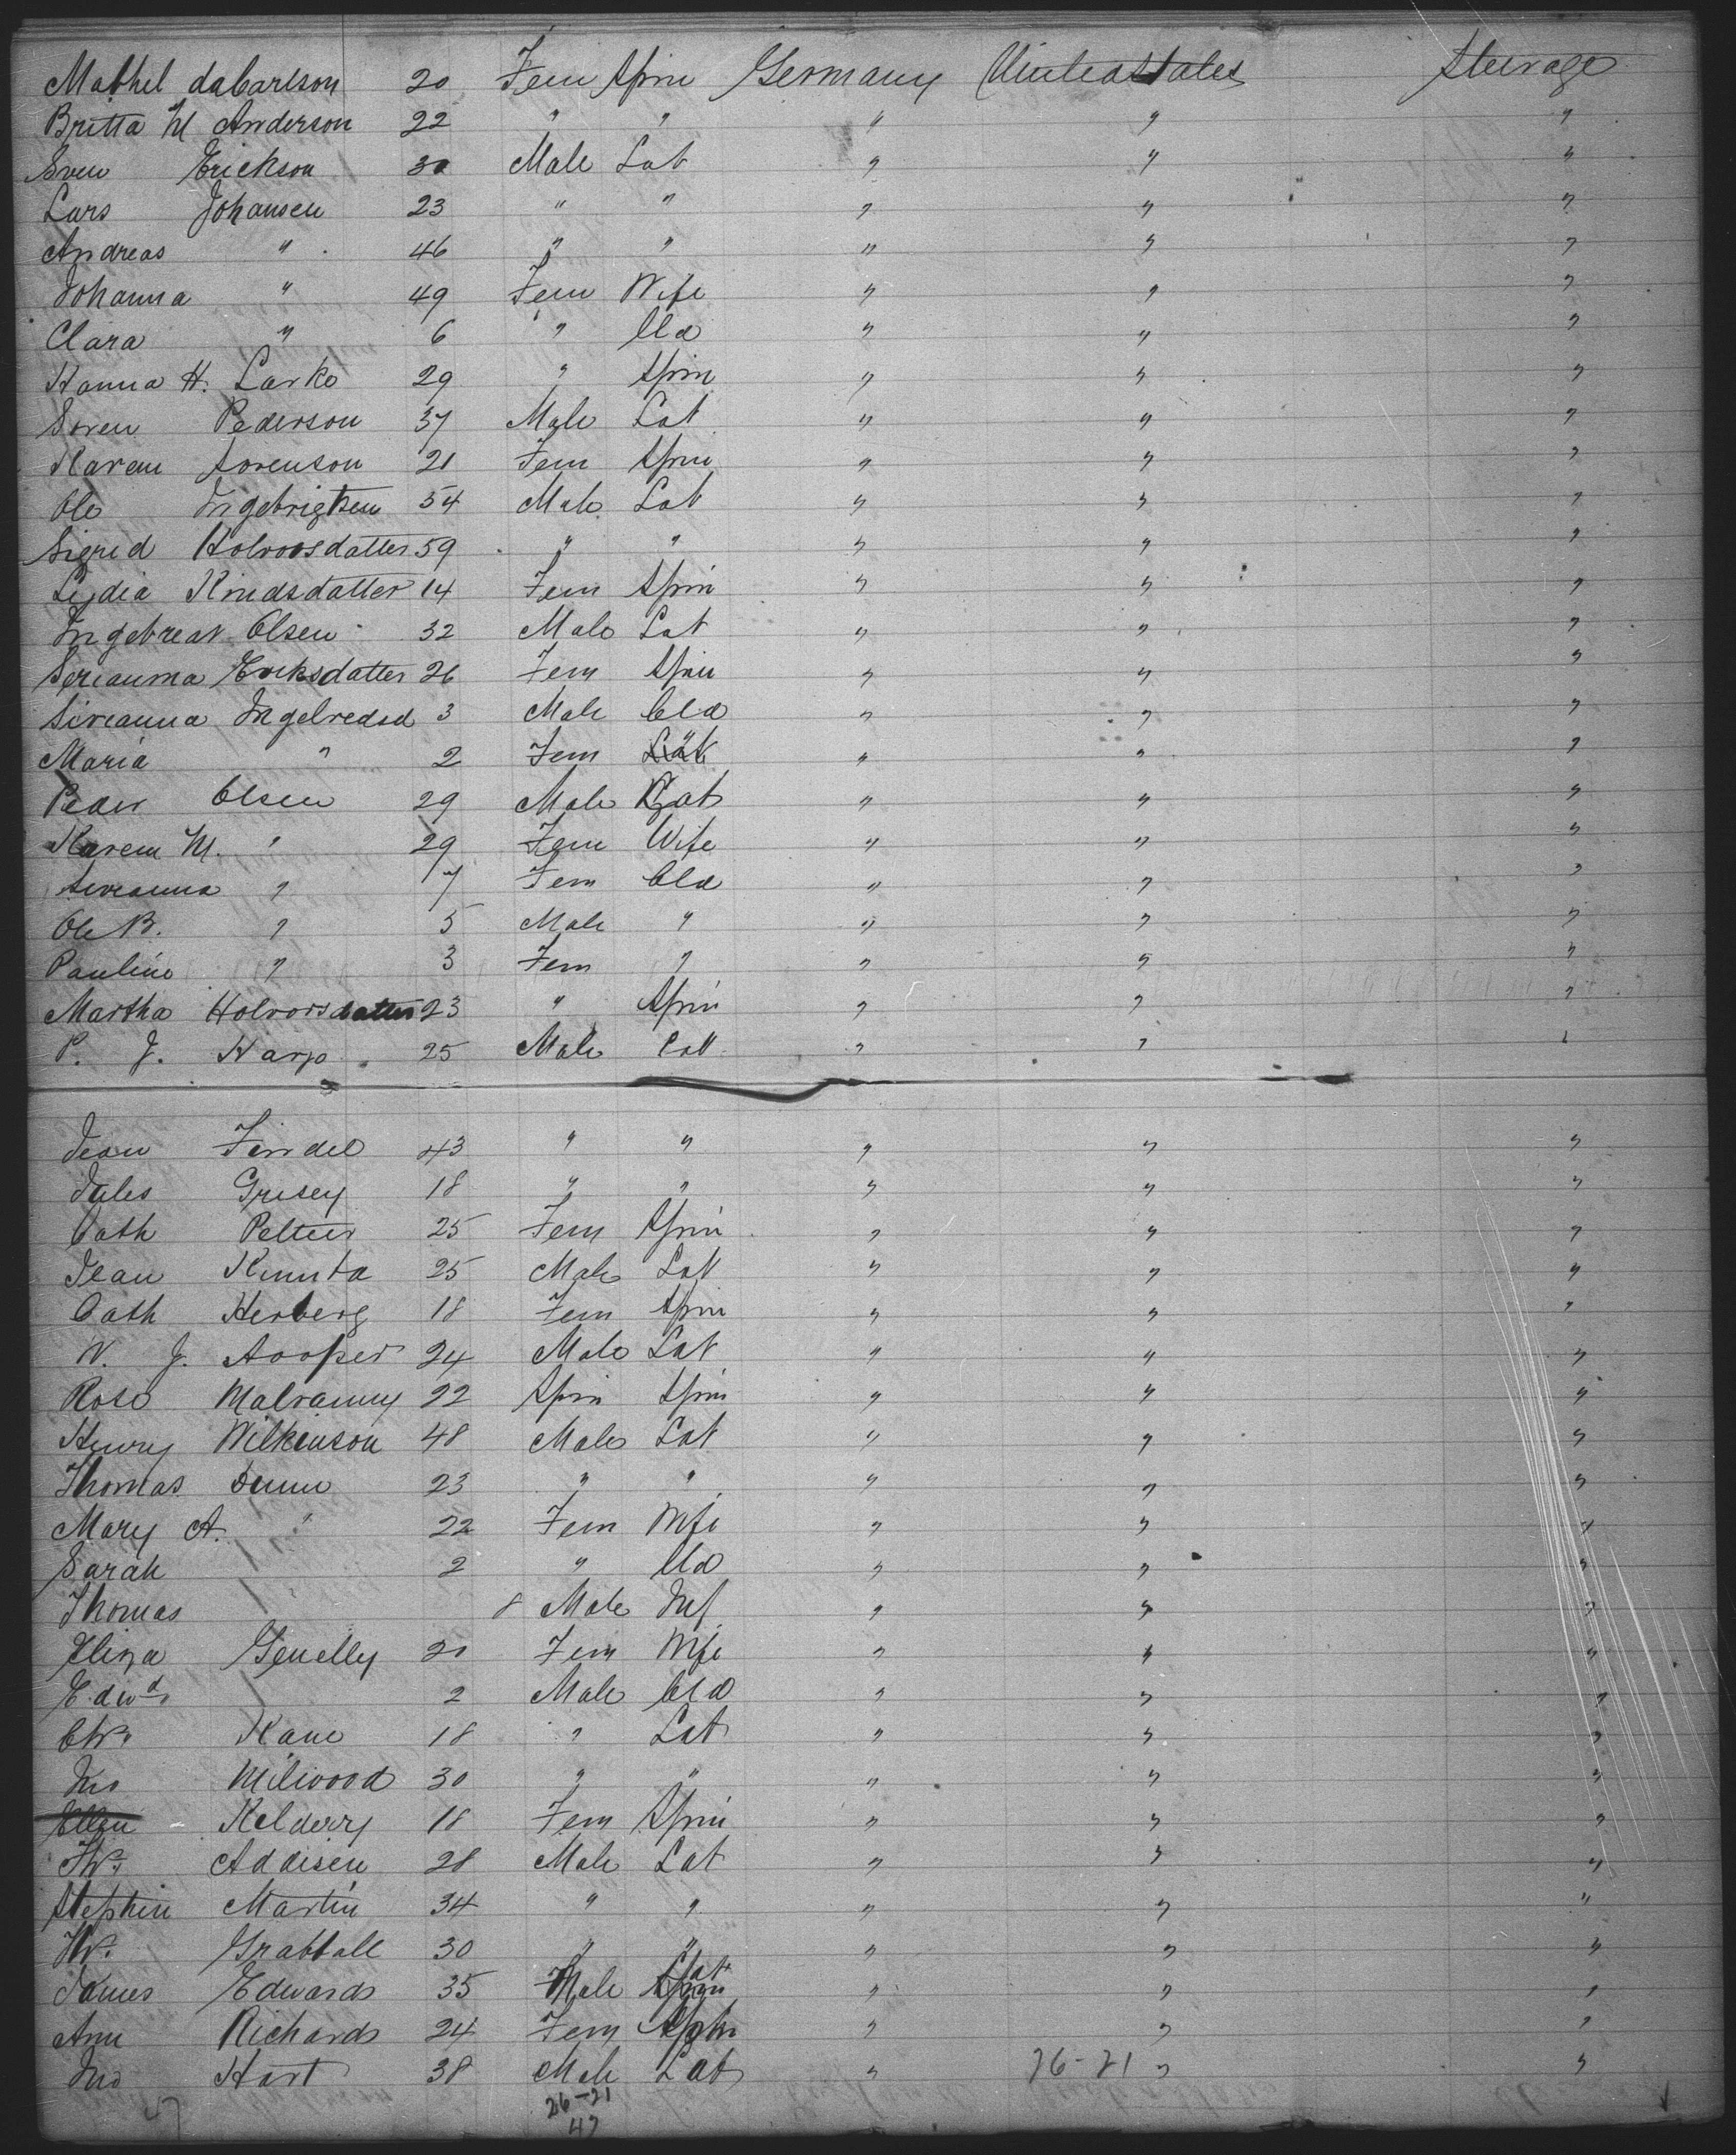 Mathel dabarlson 20 Fem Spin Germany United States Steerage
Britta M Anderson 22 " " " " "
Sven Erickson 30 Male Lab " " "
Lars Johansen 23 " " " " "
Andreas " 46 " " " " "
Johanna " 49 Fem Wife " " "
Clara " 6 " Cld " " "
Hanna H. Larko 29 " Spin " " "
Soren Pederson 37 Male Lab " " "
Karen Sorenson 21 Fem Spin " " "
Ole Ingebrigtsen 54 Male Lab " " "
Sigrid Holvorsdatter 59 " " " " "
Lydia Knudsdatter 14 Fem Spin " " "
Ingebreat Olsen 32 Male Lab " " "
Serianna Ericksdatter 26 Fem Spin " " "
Sireanna Ingelredsd 3 Male Cld " " "
Maria " 2 Fem " " " "
Peder Olsen 29 Male Lab " " "
Karen M. " 29 Fem Wife " " "
Sireanna " 7 Fem Cld " " "
Ole B. " 5 Male " " " "
Pauline " 3 Fem " " " "
Martha Holvorsdatter 23 " Spin " " "
P. J. Harp 25 Male Lab " " "
Jean Findel 43 " " " " "
Jules Grisey 18 " " " " "
Cath Peltier 25 Fem Spin " " "
Jean Kinnta 25 Male Lab " " "
Cath Herberg 18 Fem Spin " " "
W. J. Hooper 24 Male Lab " " "
Rose Malvanny 22 Spin Spin " " "
Henry Wilkinson 48 Male Lab " " "
Thomas Dunn 23 " " " " "
Mary A. " 22 Fem Wife " " "
Sarah 2 " Cld " " "
Thomas 8 Male Inf " " "
Eliza Genelly 20 Fem Wife " " "
Edwd 2 Male Cld " " "
Kane 18 " Lab " " "
Jno Milwood 30 " " " " "
Ellen Kelderry 18 Fem Spin " " "
Wm Addisen 28 Male Lab " " "
Stephen Martin 34 " " " " "
Wm Grattall 30 " " " " "
James Edwards 35 Male Lab " " "
Ann Richards 24 Fem Spin " " "
Jno Hart 38 Male Lab " 26-21 " "
26-21
47
47